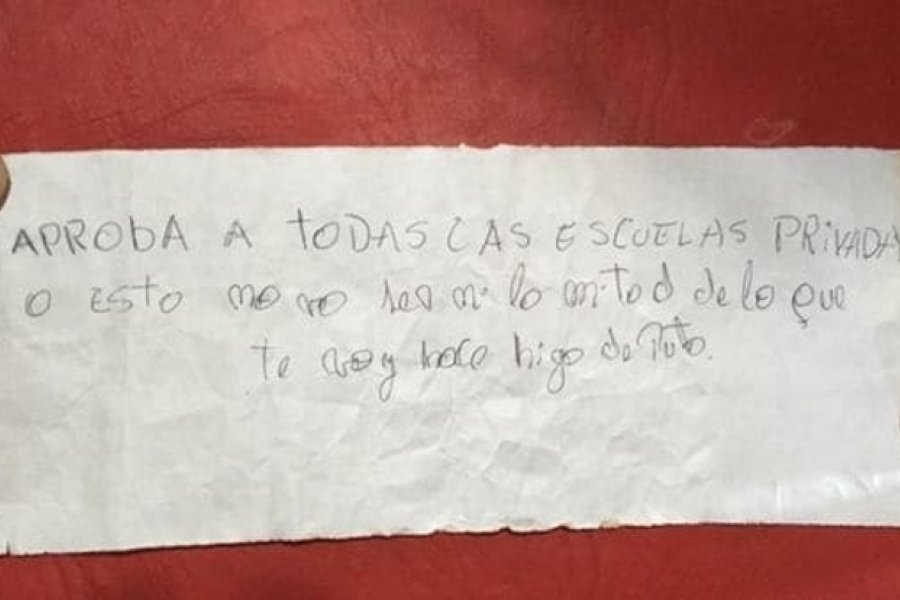 APRObA A tODAS LAS ESCUELAS PRiVADA
O ESto no va ser ni la mitad de lo que
te voy hace higo de Puto.